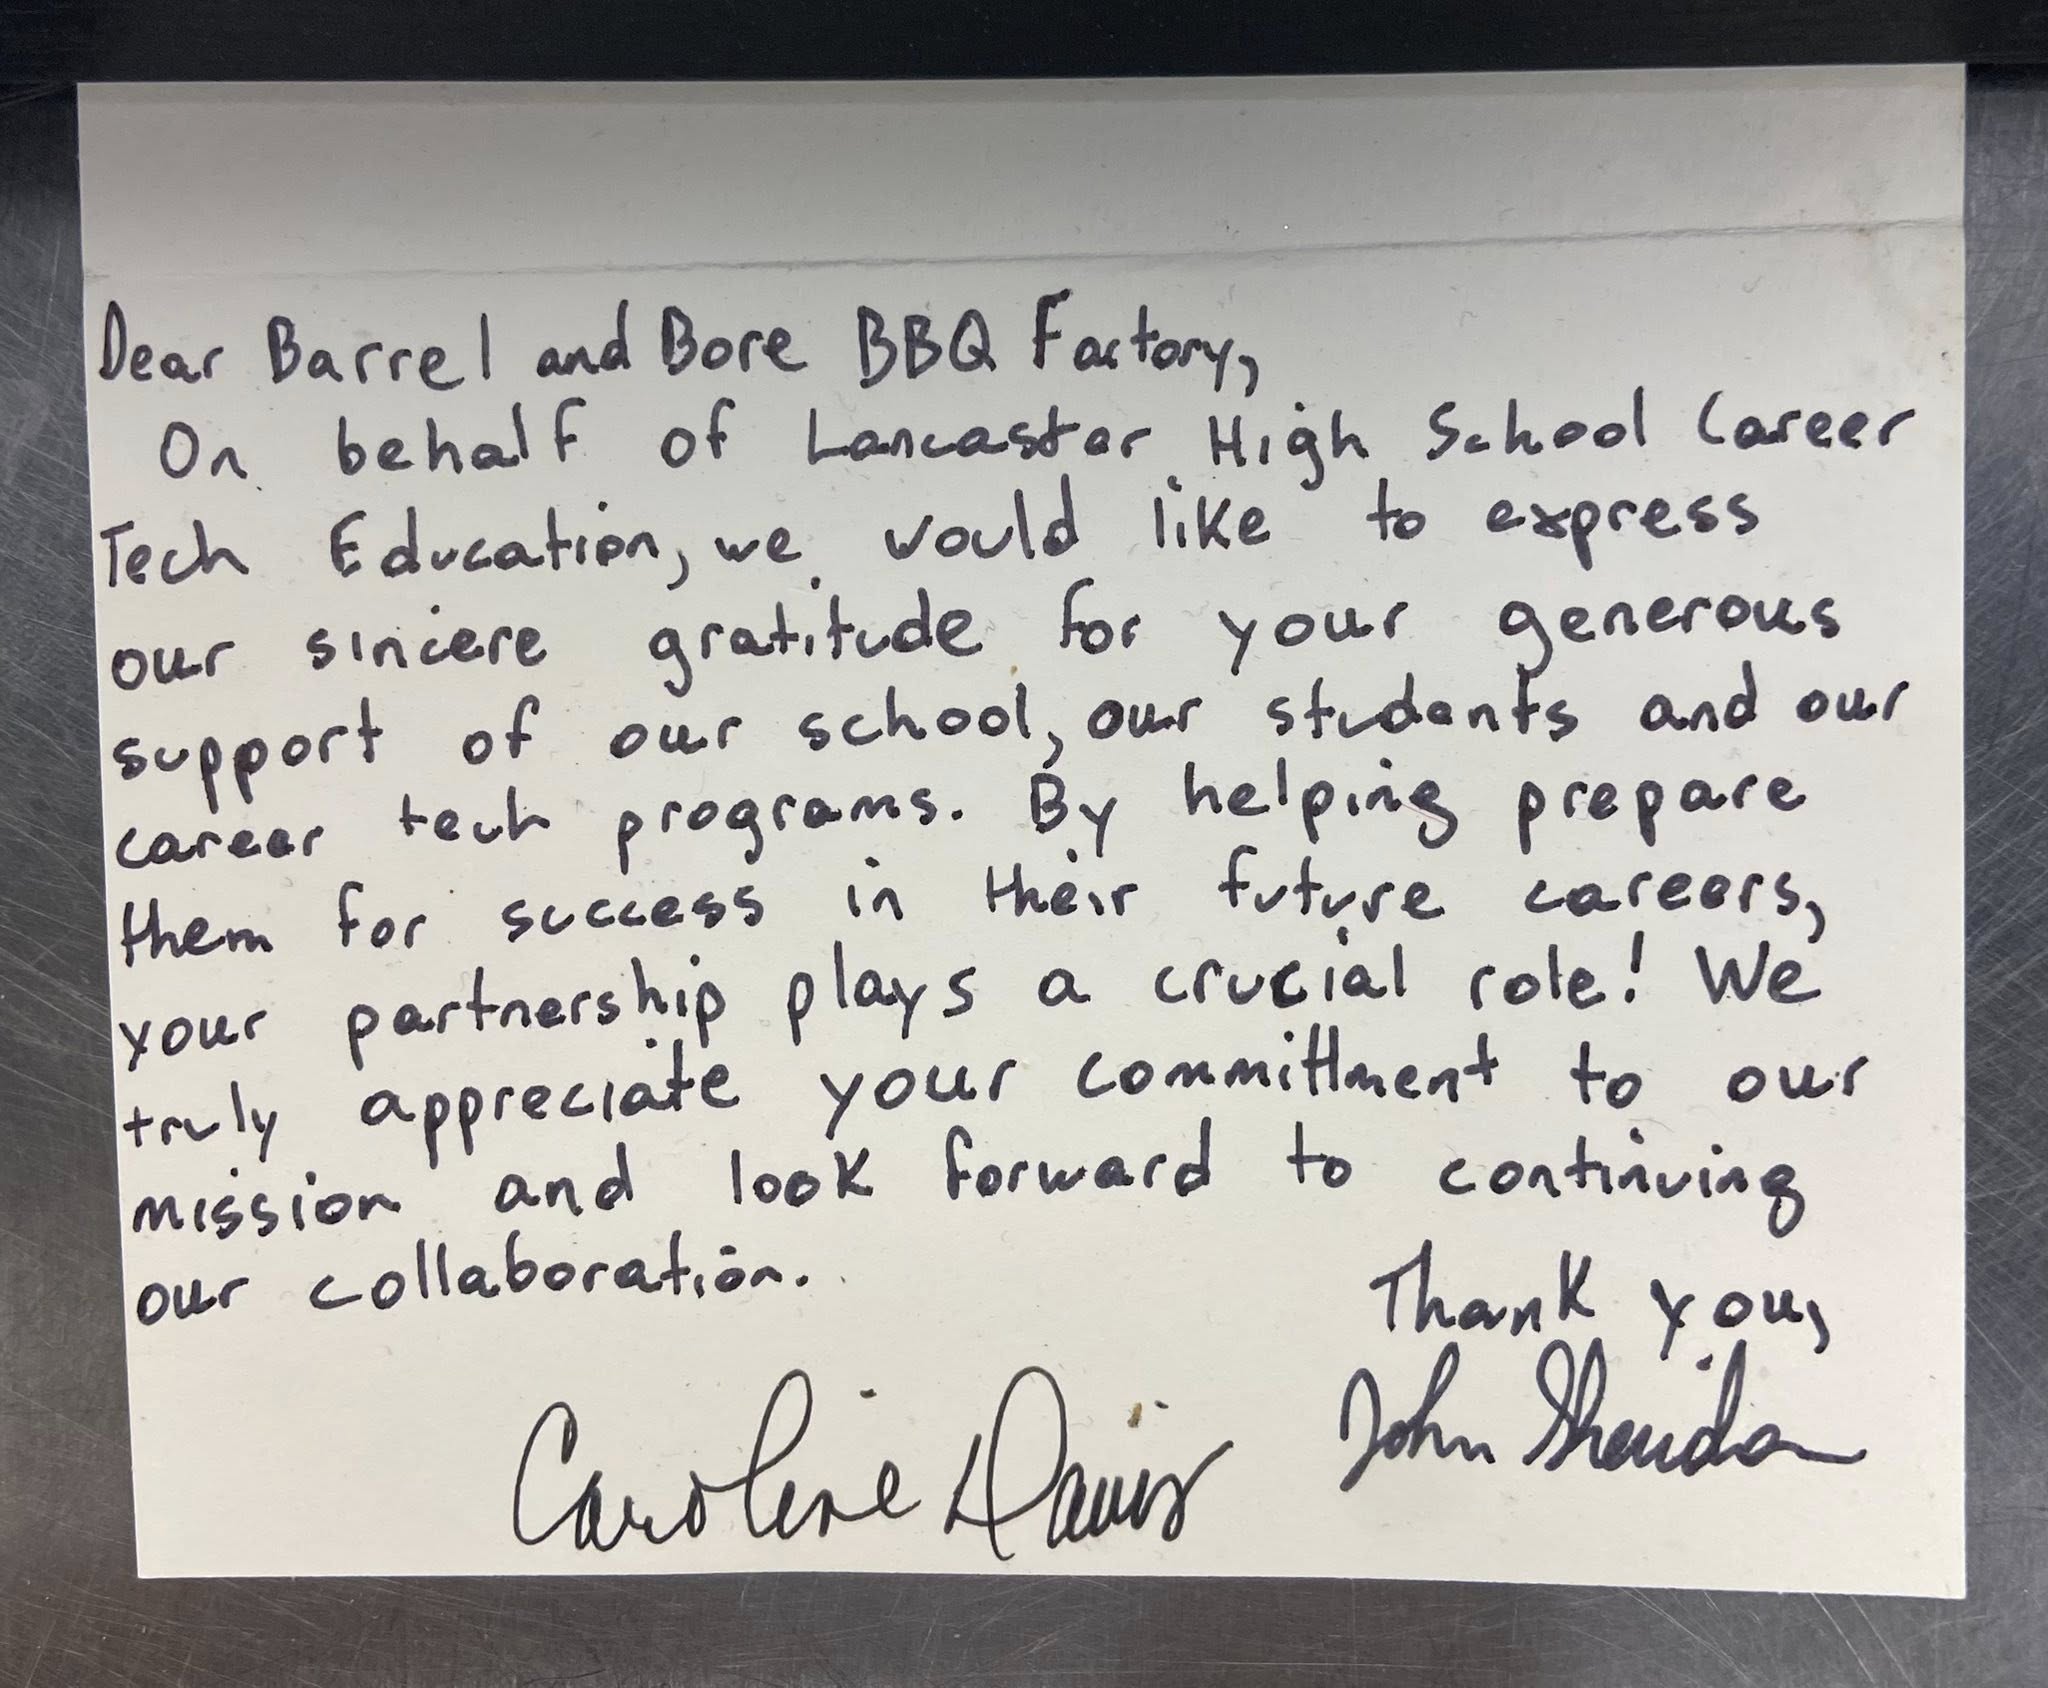 Dear Barrel and Bore BBQ Factory,
On behalf of Lancaster High School Career
Tech Education, we would like to express
our sincere gratitude for your generous
support of our school, our students and our
career tech programs. By helping prepare
them for success in their future careers,
your partnership plays a crucial role! We
truly appreciate your committment to our
mission and look forward to continuing
our collaboration.
Thank you,
John Sheridan
Caroline Davis